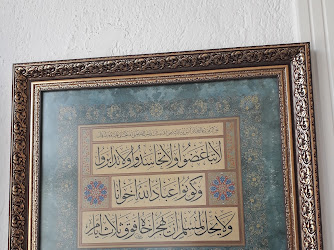 لا تباغضوا ولا تحاسدوا ولا تدابروا
وكونوا عباد الله إخوانا
ولا يحل لمسلم أن يهجر أخاه فوق ثلاثة أيام